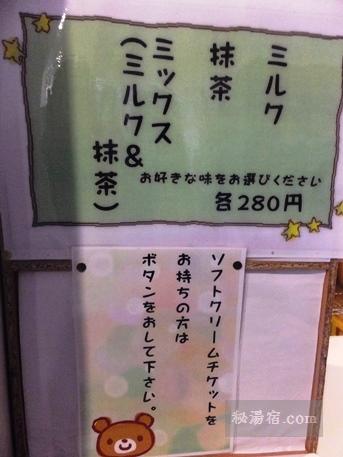 ミルク
抹茶
ミックス
(ミルク&
抹茶)
お好きな味をお選びください
各280円
ソフトクリームチケットを
お持ちの方は
ボタンをおして下さい。
秘湯宿.com